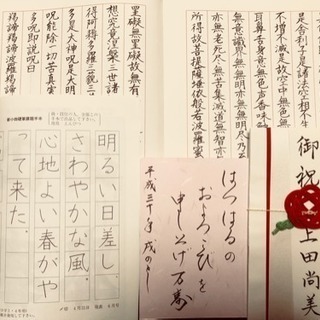 是舎利子是諸法空相不生
不増不減是故空中無色無
耳鼻舌身意無色声香味触
無意識界無無明亦無無明尽乃至
亦無老死尽無苦集滅道無智亦
所得故菩提薩埵依般若波羅蜜
罣礙無罣礙故無有
想究竟涅槃三世諸
得阿耨多羅三藐三菩
多是大神呪是大明
呪能除一切苦真実
多呪即説呪日
羯諦羯諦波羅羯諦
明るい日差し。
さわやかな風。
心地よい春がや
って来た。
はつはるの
およろこびを
申し上げ万寿
平成三十年 戌のとし
御祝
上田尚美